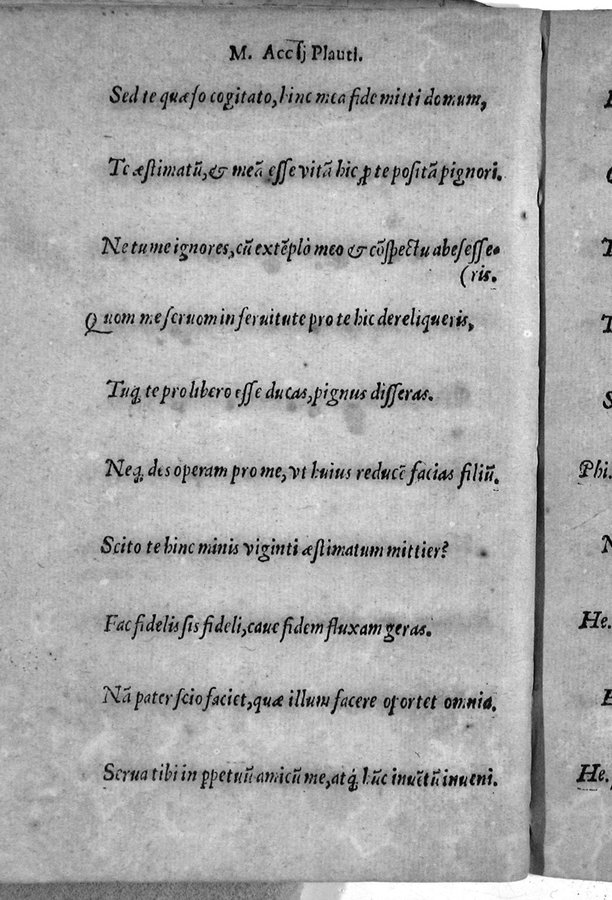 M. Accij Plauti.
Sed te quæso cogitato, hinc mea fide mitti domum,
Te æstimatū, & meā esse vitā hic ꝓ te positā pignori.
Ne tu me ignores, cū extēplò meo è cōspectu abesesse-
(ris.
Quom me seruom in seruitute pro te hic dereliqueris,
Tuq; te pro libero esse ducas, pignus disseras.
Neq; des operam pro me, vt huius reducē facias filiū.
Scito te hinc minis viginti æstimatum mittier?
Fac fidelis sis fideli, caue fidem fluxam geras.
Nā pater scio faciet, quæ illum facere oportet omnia.
Serua tibi in ꝑpetuū amicū me, atq; hūc inuētū inueni.
Phi.
He.
He.